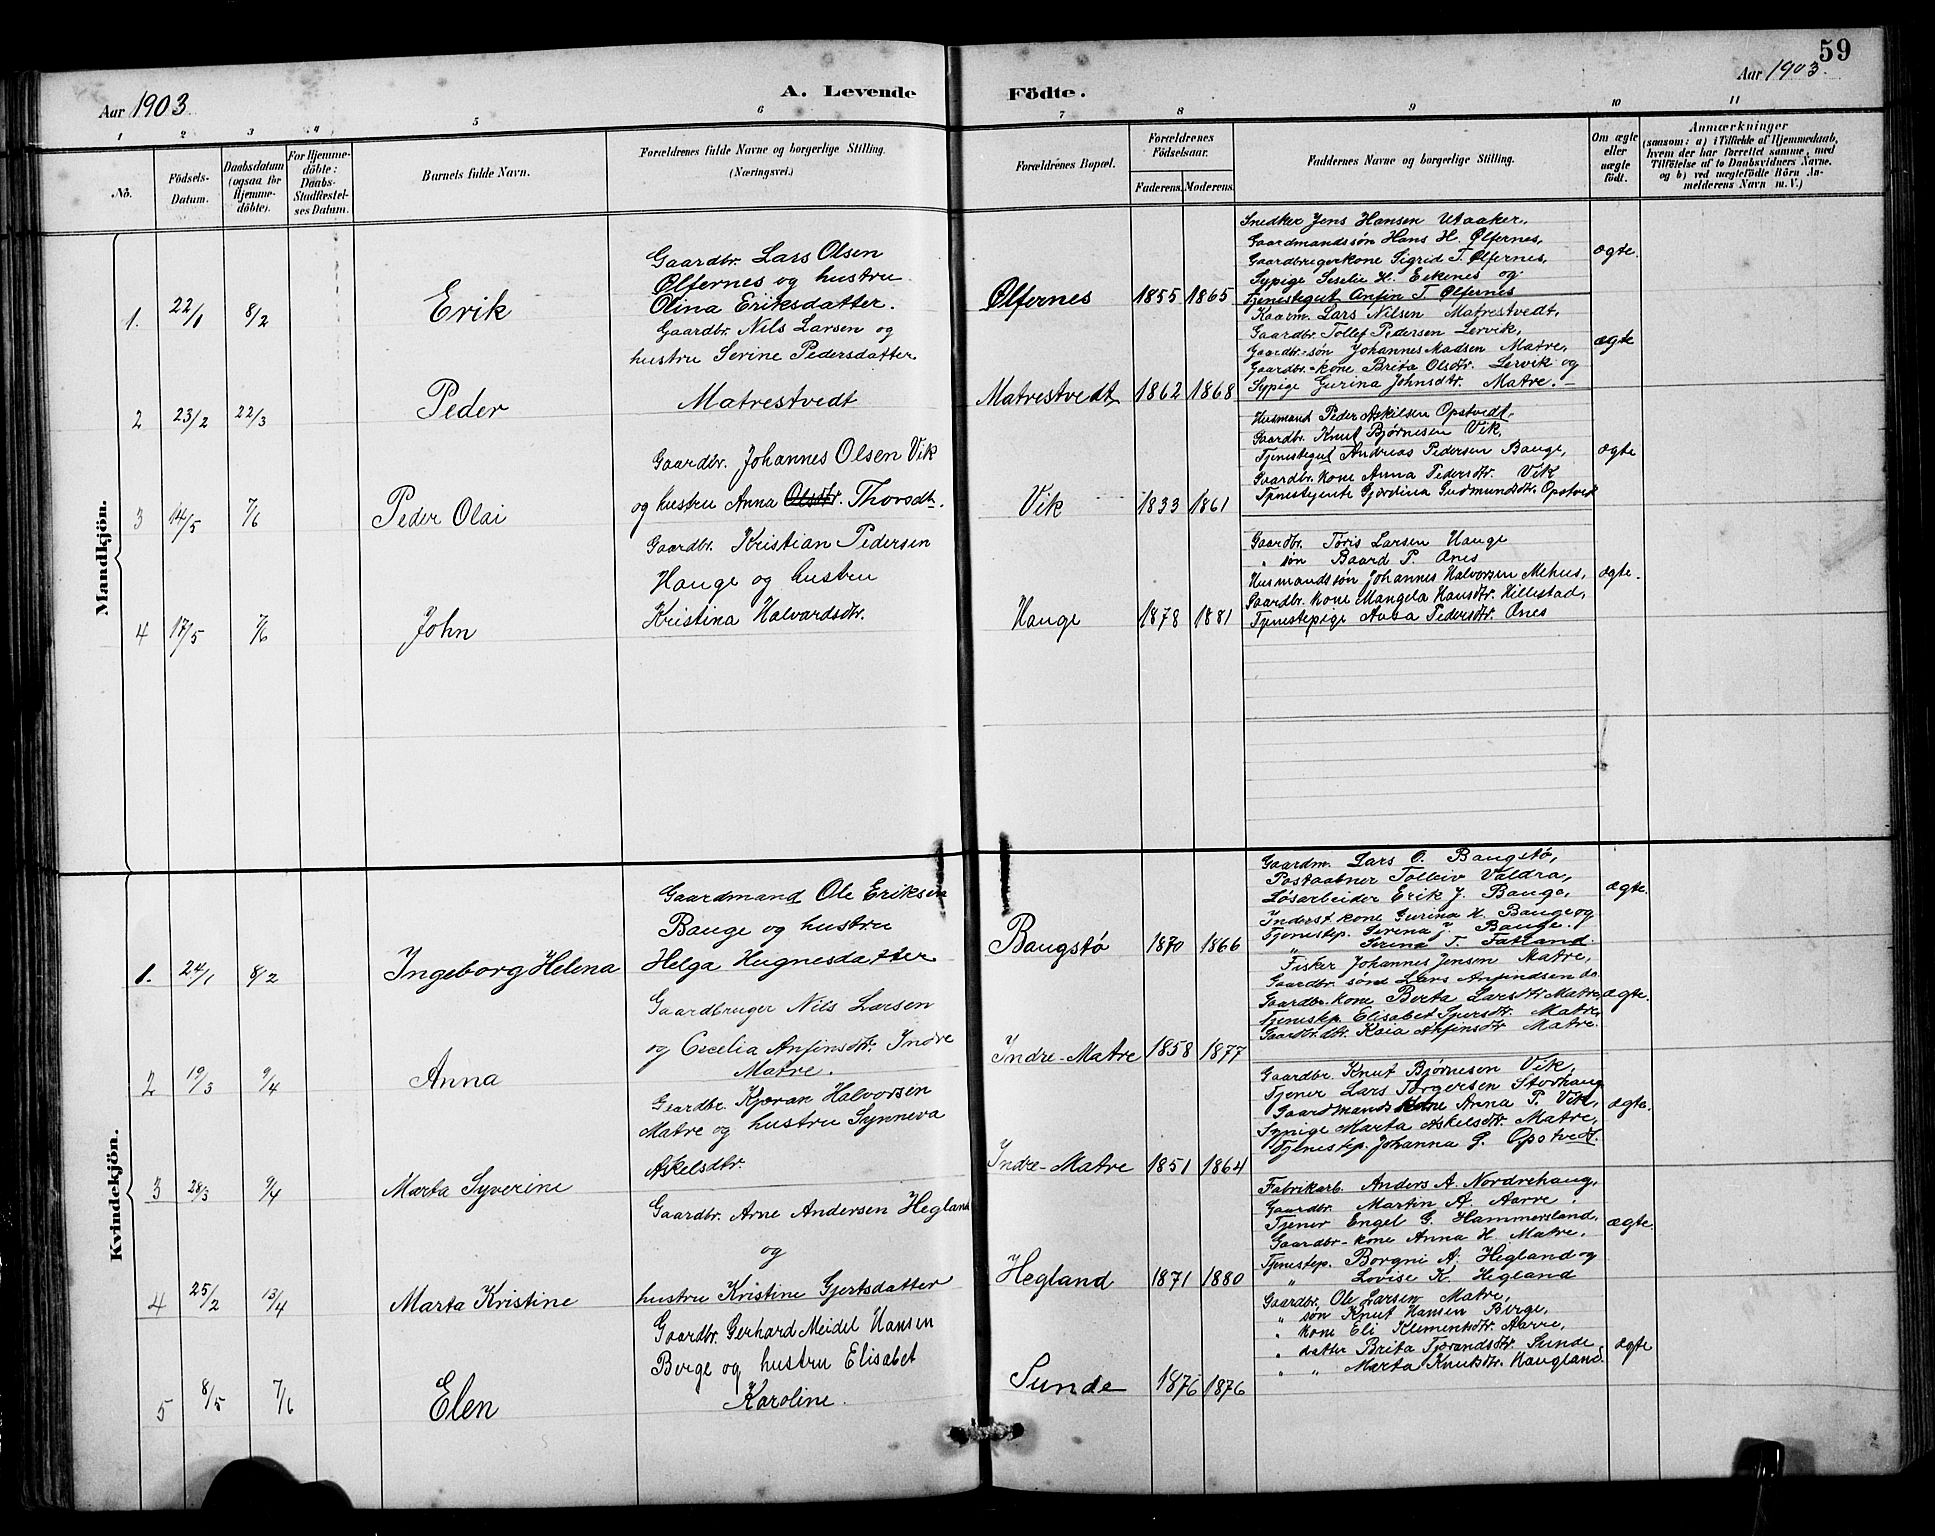 59
Aar 1903
A. Levende Födte.
Aar 1903.
1 2 3 4 5 6 7 8 9 10 11
No.
Födsels-Datum.
Daabsdatum (ogsaa for Hjemme-döbte).
For Hjemme-döbte: Daabs-Stadfæstel-ses Datum.
Barnets fulde Navn.
Forældrenes fulde Navne og borgerlige Stilling.
(Næringsvei.)
Forældrenes Bopæl.
Forældrenes Födselsaar.
Faderens. Moderens.
Faddernes Navne og borgerlige Stilling.
Om ægte eller uægte födt.
Anmærkninger
(saasom: a) i Tilfælde af Hjemmedaab, hvem der har forrettet samme, med Tilföielse af to Daabsvidners Navne, og b) ved uægtefödte Börn Anmelderens Navn m. V.)
Mandkjön.
1. 22/1 8/2 Erik
Gaardbr. Lars Olsen
Ølfernes og hustru
Olina Eriksdatter.
Ølfernes 1855 1865
Snedker Jens Hansen Utaaker,
Gaardmandssøn Hans H. Ølfernes,
Gaardbrugerkone Sigrid T. Ølfernes,
Sypige Seselie H. Eikenes og
Tjenestegut Anfin T. Ølfernes
ægte.
2 23/2 22/3 Peder
Gaardbr. Nils Larsen og
hustru Serine Pedersdatter
Matrestvedt
Matrestvedt 1862 1868
Kaarm. Lars Nilsen Matrestvedt,
Gaardbr. Tollef Pedersen Lervik,
Gaardbr.søn Johannes Madsen Matre,
Gaardbr.-kone Brita Olsdtr. Lervik og
Sypige Gurina Johnsdtr. Matre.
ægte
3 14/5 7/6 Peder Olai
Gaardbr. Johannes Olsen Vik
og hustru Anna Olsdtr. Thorsdtr.
Vik 1833 1861
Husmand Peder Askilsen Opstvedt,
Gaardbr. Knut Bjørnesen Vik,
Tjenestegut Andreas Pedersen Bauge,
Gaardbr. kone Anna Pedersdtr. Vik
Tjenestejente Gjørdina Gudmundsdtr. Opstvedt
ægte
4 17/5 7/6 John
Gaardbr. Kristian Pedersen
Hauge og hustru
Kristina Halvardsdtr.
Hauge 1878 1881
Gaardbr. Tøris Larsen Hauge
" søn Baard P. Ones
Husmandssøn Johannes Halvorsen Mehus,
Gaardbr. kone Mangela Hansdtr. Hillestad,
Tjenestepige Aasa Pedersdtr. Ones
ægte.
Kvindekjön.
1. 24/1 8/2 Ingeborg Helena
Gaardmand Ole Eriksen
Bauge og hustru
Helga Hugnesdatter
Baugstø 1870 1866
Gaardm. Lars O. Baugstø,
Postaabner Tolleiv Valdra,
Løsarbeider Erik J. Bauge,
Inderst kone Gurina H. Bauge og
Tjenestep. Serina J. Bauge.
" Serina T. Fatland
ægte.
2 19/3 9/4 Anna
Gaardbruger Nils Larsen
og Cecelia Anfinsdtr. Indre
Matre.
Indre-Matre 1858 1877
Fisker Johannes Jensen Matre,
Gaardbr. søn Lars Anfindsen do
Gaardbr.kone Berta Larsdtr Matre,
Tjenestep. Elisabet Sjursdtr. Matre,
Gaardbr.dtr. Kaia Anfinsdtr Matre.
ægte.
3 28/3 9/4 Marta Syverine
Gaardbr. Kjøran Halvorsen
Matre og hustru Synneva
Askelsdtr.
Indre-Matre 1851 1864
Gaardbr. Knut Bjørnesen Vik,
Tjener Lars Torgersen Storhaug
Gaardmands kone Anna P. Vik,
Sypige Marta Askelsdtr. Matre,
Tjenestep. Johanna G. Opstvedt.
ægte.
4 25/2 13/4 Marta Kristine
Gaardbr. Arne Andersen Hegland
og
hustru Kristine Gjertsdatter
Hegland 1871 1880
Fabrikarb. Anders A. Nordrehaug,
Gaardbr. Martin A. Aarre,
Tjener Engel G. Hammersland,
Gaardbr-kone Anna H. Matre,
Tjenestep. Borgni A. Hegland og
" Lovise K. Hegland
ægte.
5 8/5 7/6 Elen
Gaardbr. Gerhard Meidel Hansen
Berge og hustru Elisabet
Karoline.
Sunde 1876 1876
Gaardbr. Ole Larsen Matre,
" søn Knut Hansen Berge,
" kone Eli Klementsdtr. Aarre,
" datter Brita Tjørandsdtr. Sunde
" " Marta Knutsdtr. Haugland.
ægte